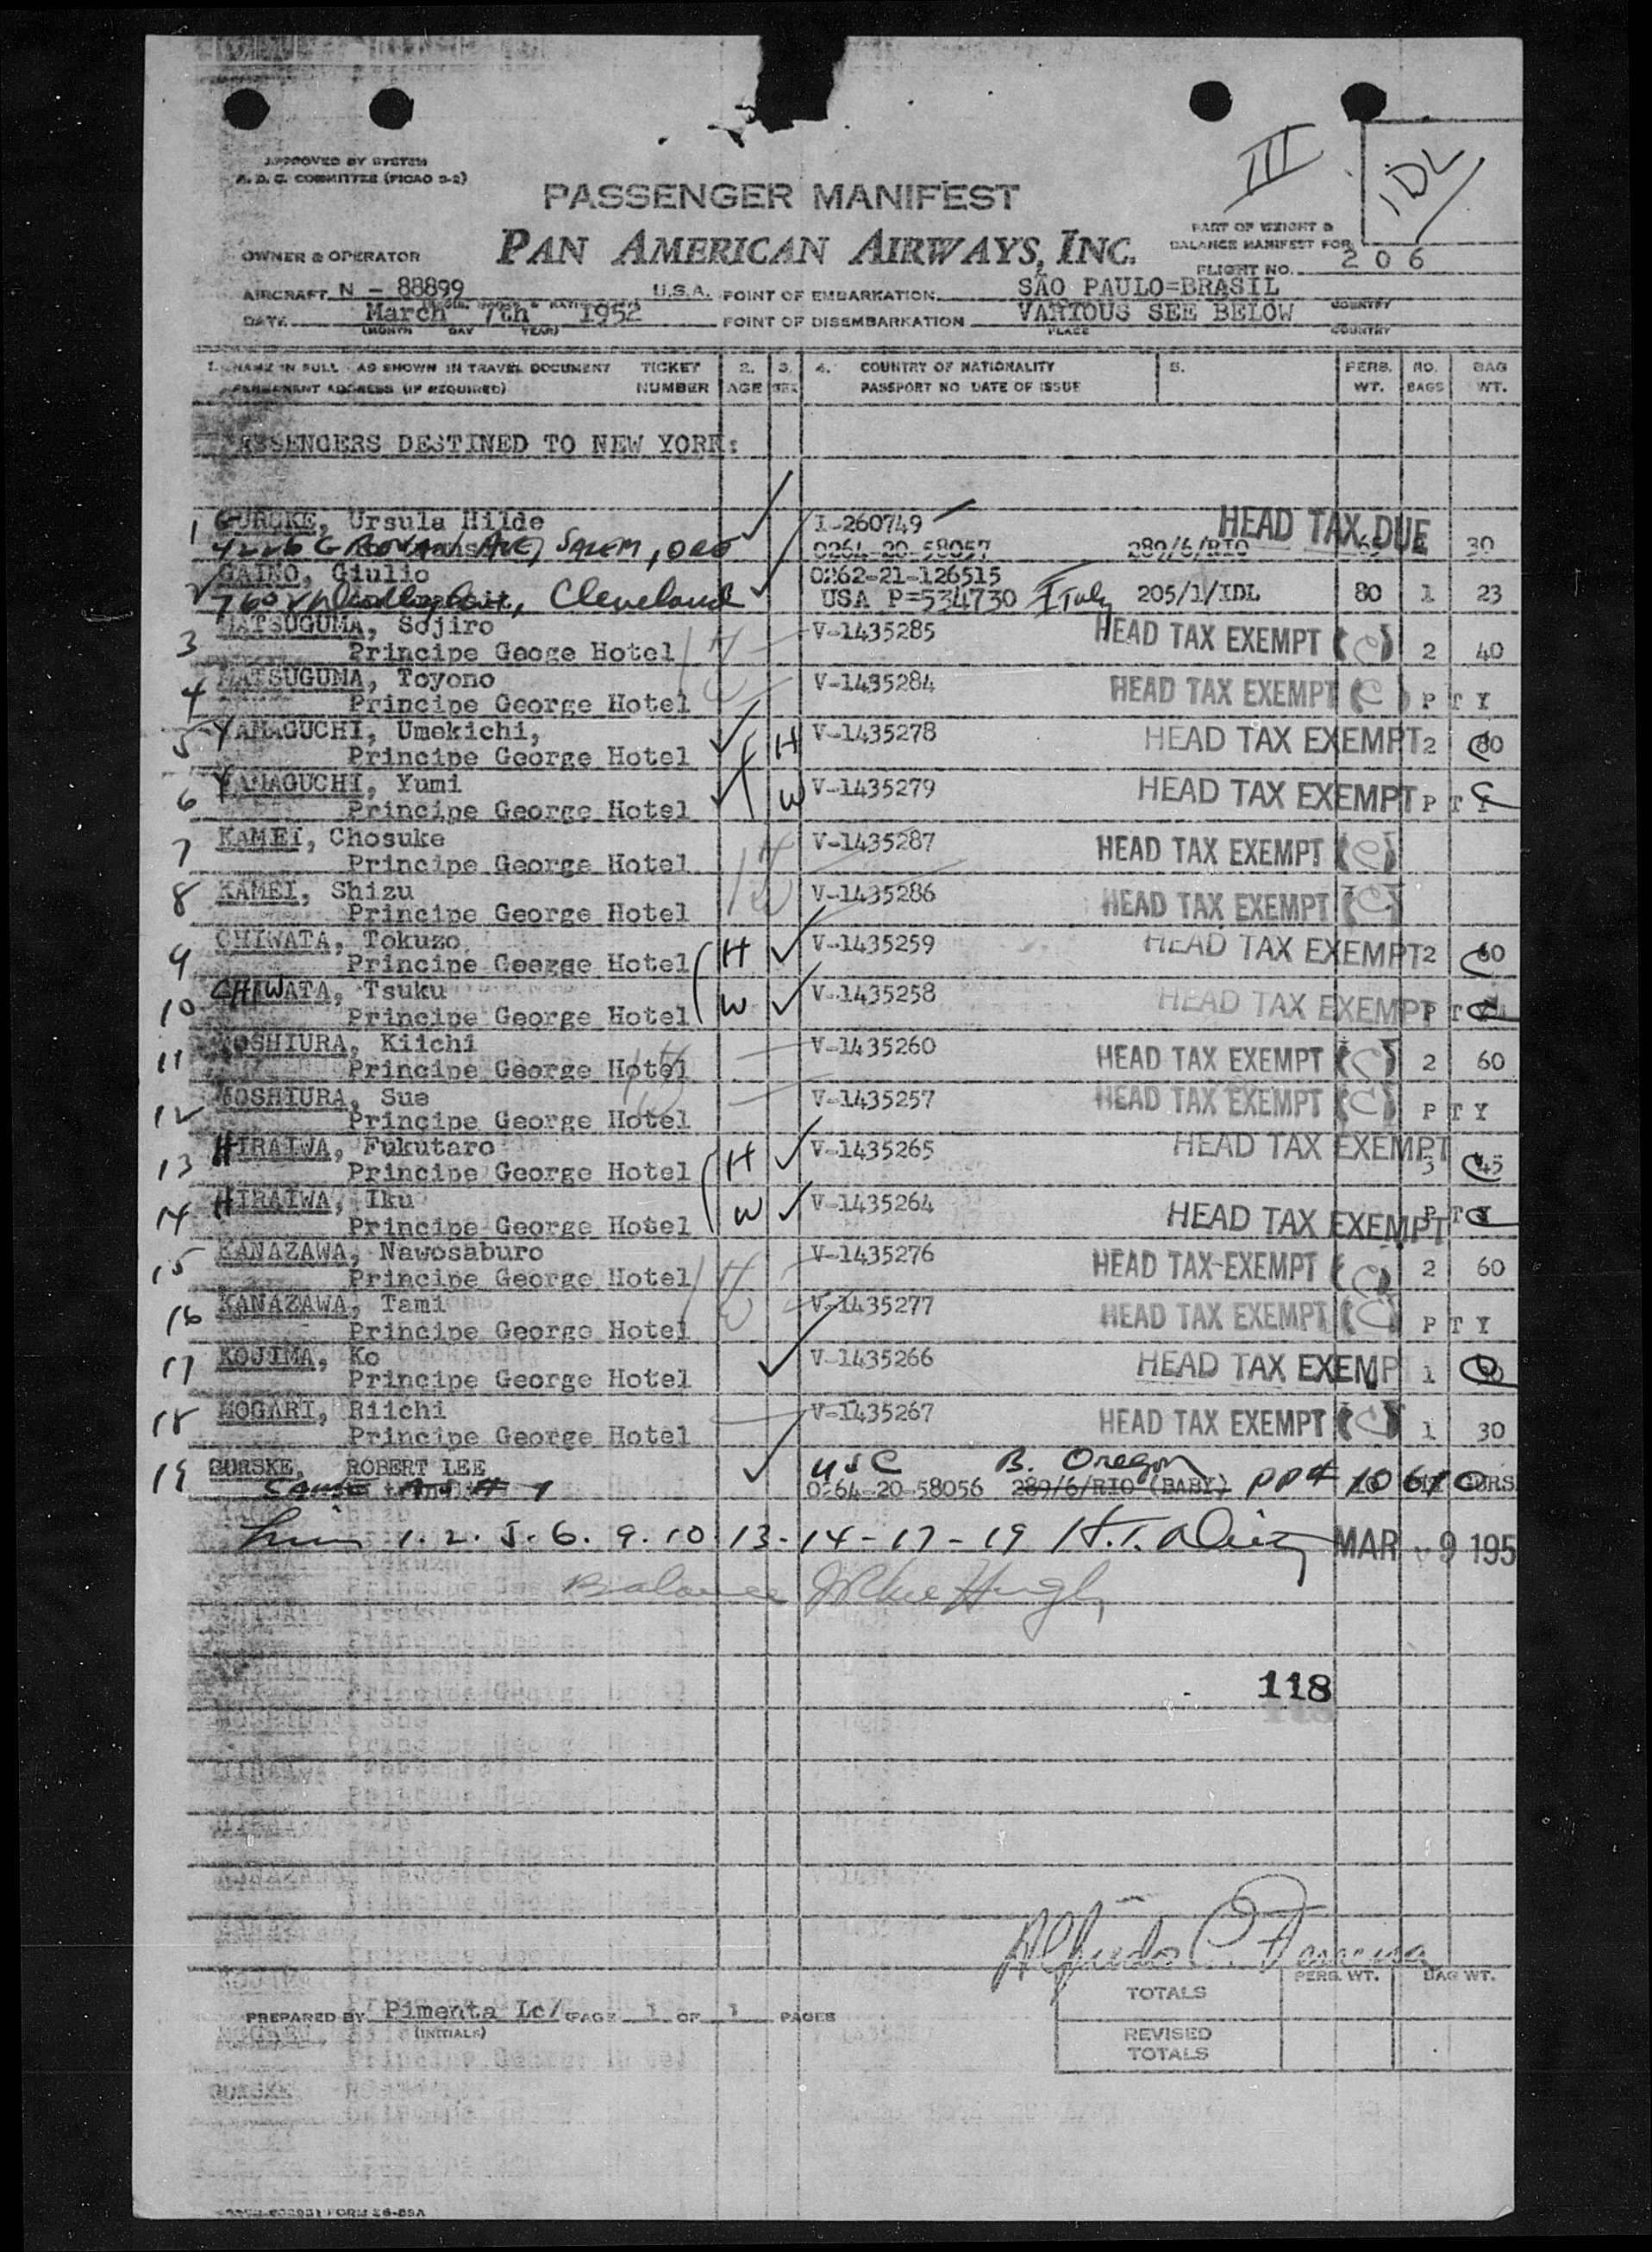 III
IDL
APPROVED BY SYSTEM
A. D. C. COMMITTEE (PICAO 3-2)
PASSENGER MANIFEST
PART OF WEIGHT &
BALANCE MANIFEST FOR
OWNER & OPERATOR
PAN AMERICAN AIRWAYS, INC.
FLIGHT NO. 206
AIRCRAFT N - 88899 U.S.A. POINT OF EMBARKATION SÃO PAULO=BRASIL
DATE March 7th 1952 POINT OF DISEMBARKATION VARIOUS SEE BELOW COUNTRY
(MONTH DAY YEAR) PLACE COUNTRY
1. NAME IN FULL - AS SHOWN IN TRAVEL DOCUMENT TICKET 2. 3. 4. COUNTRY OF NATIONALITY 5. PERS. NO. BAG
PERMANENT ADDRESS (IF REQUIRED) NUMBER AGE SEX PASSPORT NO DATE OF ISSUE WT. BAGS WT.
PASSENGERS DESTINED TO NEW YORK:
1 GURSKE, Ursula Hilde I-260749 HEAD TAX DUE
AVE, SALEM, ORE 0264-20-58057 289/6/RIO 30
2 GAINO, Giulio 0262-21-126515
Cleveland USA P=534730 Italy 205/1/IDL 80 1 23
3 MATSUGUMA, Sojiro V-1435285 HEAD TAX EXEMPT (C)
Principe Geoge Hotel H 2 40
4 MATSUGUMA, Toyono V-1435284 HEAD TAX EXEMPT (C)
Principe George Hotel W P T Y
5 YAMAGUCHI, Umekichi, H V-1435278 HEAD TAX EXEMPT 2
Principe George Hotel
6 YAMAGUCHI, Yumi W V-1435279 HEAD TAX EXEMPT P T Y
Principe George Hotel
7 KAMEI, Chosuke V-1435287 HEAD TAX EXEMPT (C)
Principe George Hotel H
8 KAMEI, Shizu W V-1435286 HEAD TAX EXEMPT (C)
Principe George Hotel
9 CHIWATA, Tokuzo H V-1435259 HEAD TAX EXEMPT 2 60
Principe George Hotel
10 CHIWATA, Tsuku W V-1435258 HEAD TAX EXEMPT P T
Principe George Hotel
11 YOSHIURA, Kiichi V-1435260 HEAD TAX EXEMPT (C) 2 60
Principe George Hotel H
12 YOSHIURA, Sue V-1435257 HEAD TAX EXEMPT (C) P T Y
Principe George Hotel W
13 HIRAIWA, Fukutaro H V-1435265 HEAD TAX EXEMPT 3 45
Principe George Hotel
14 HIRAIWA, Iku W V-1435264 HEAD TAX EXEMPT P T Y
Principe George Hotel
15 KANAZAWA, Nawosaburo V-1435276 HEAD TAX EXEMPT (C) 2 60
Principe George Hotel H
16 KANAZAWA, Tami W V-1435277 HEAD TAX EXEMPT (C) P T Y
Principe George Hotel
17 KOJIMA, Ko V-1435266 HEAD TAX EXEMP 1
Principe George Hotel
18 MOGARI, Riichi V-1435267 HEAD TAX EXEMPT (C) 1 30
Principe George Hotel
19 GURSKE, ROBERT LEE USC B. Oregon
Same as # 1 0264-20-58056 289/6/RIO (BABY) PP# 10610
1. 2. 5. 6. 9. 10. 13 - 14 - 17 - 19 MAR -9 195
Balance
118
TOTALS PERS. WT. BAG WT.
PREPARED BY Pimenta Lc/ PAGE 1 OF 1 PAGES
(INITIALS)
REVISED
TOTALS